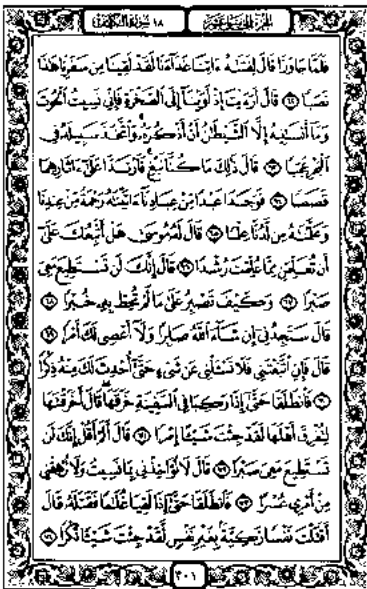 الجزء الخامس عشر
١٨ سورة الكهف
فَلَمَّا جَاوَزَا قَالَ لِفَتَىٰهُ ءَاتِنَا غَدَآءَنَا لَقَدْ لَقِينَا مِن سَفَرِنَا هَٰذَا
نَصَبًا ٦٢ قَالَ أَرَءَيْتَ إِذْ أَوَيْنَآ إِلَى ٱلصَّخْرَةِ فَإِنِّى نَسِيتُ ٱلْحُوتَ
وَمَآ أَنسَىٰنِيهُ إِلَّا ٱلشَّيْطَٰنُ أَنْ أَذْكُرَهُۥ وَٱتَّخَذَ سَبِيلَهُۥ فِى
ٱلْبَحْرِ عَجَبًا ٦٣ قَالَ ذَٰلِكَ مَا كُنَّا نَبْغِ فَٱرْتَدَّا عَلَىٰٓ ءَاثَارِهِمَا
قَصَصًا ٦٤ فَوَجَدَا عَبْدًا مِّنْ عِبَادِنَآ ءَاتَيْنَٰهُ رَحْمَةً مِّنْ عِندِنَا
وَعَلَّمْنَٰهُ مِن لَّدُنَّا عِلْمًا ٦٥ قَالَ لَهُۥ مُوسَىٰ هَلْ أَتَّبِعُكَ عَلَىٰٓ
أَن تُعَلِّمَنِ مِمَّا عُلِّمْتَ رُشْدًا ٦٦ قَالَ إِنَّكَ لَن تَسْتَطِيعَ مَعِىَ
صَبْرًا ٦٧ وَكَيْفَ تَصْبِرُ عَلَىٰ مَا لَمْ تُحِطْ بِهِۦ خُبْرًا ٦٨
قَالَ سَتَجِدُنِىٓ إِن شَآءَ ٱللَّهُ صَابِرًا وَلَآ أَعْصِى لَكَ أَمْرًا ٦٩
قَالَ فَإِنِ ٱتَّبَعْتَنِى فَلَا تَسْـَٔلْنِى عَن شَىْءٍ حَتَّىٰٓ أُحْدِثَ لَكَ مِنْهُ ذِكْرًا
٧٠ فَٱنطَلَقَا حَتَّىٰٓ إِذَا رَكِبَا فِى ٱلسَّفِينَةِ خَرَقَهَا قَالَ أَخَرَقْتَهَا
لِتُغْرِقَ أَهْلَهَا لَقَدْ جِئْتَ شَيْـًٔا إِمْرًا ٧١ قَالَ أَلَمْ أَقُلْ إِنَّكَ لَن
تَسْتَطِيعَ مَعِىَ صَبْرًا ٧٢ قَالَ لَا تُؤَاخِذْنِى بِمَا نَسِيتُ وَلَا تُرْهِقْنِى
مِنْ أَمْرِى عُسْرًا ٧٣ فَٱنطَلَقَا حَتَّىٰٓ إِذَا لَقِيَا غُلَٰمًا فَقَتَلَهُۥ قَالَ
أَقَتَلْتَ نَفْسًا زَكِيَّةًۢ بِغَيْرِ نَفْسٍ لَّقَدْ جِئْتَ شَيْـًٔا نُّكْرًا ٧٤
٣٠١